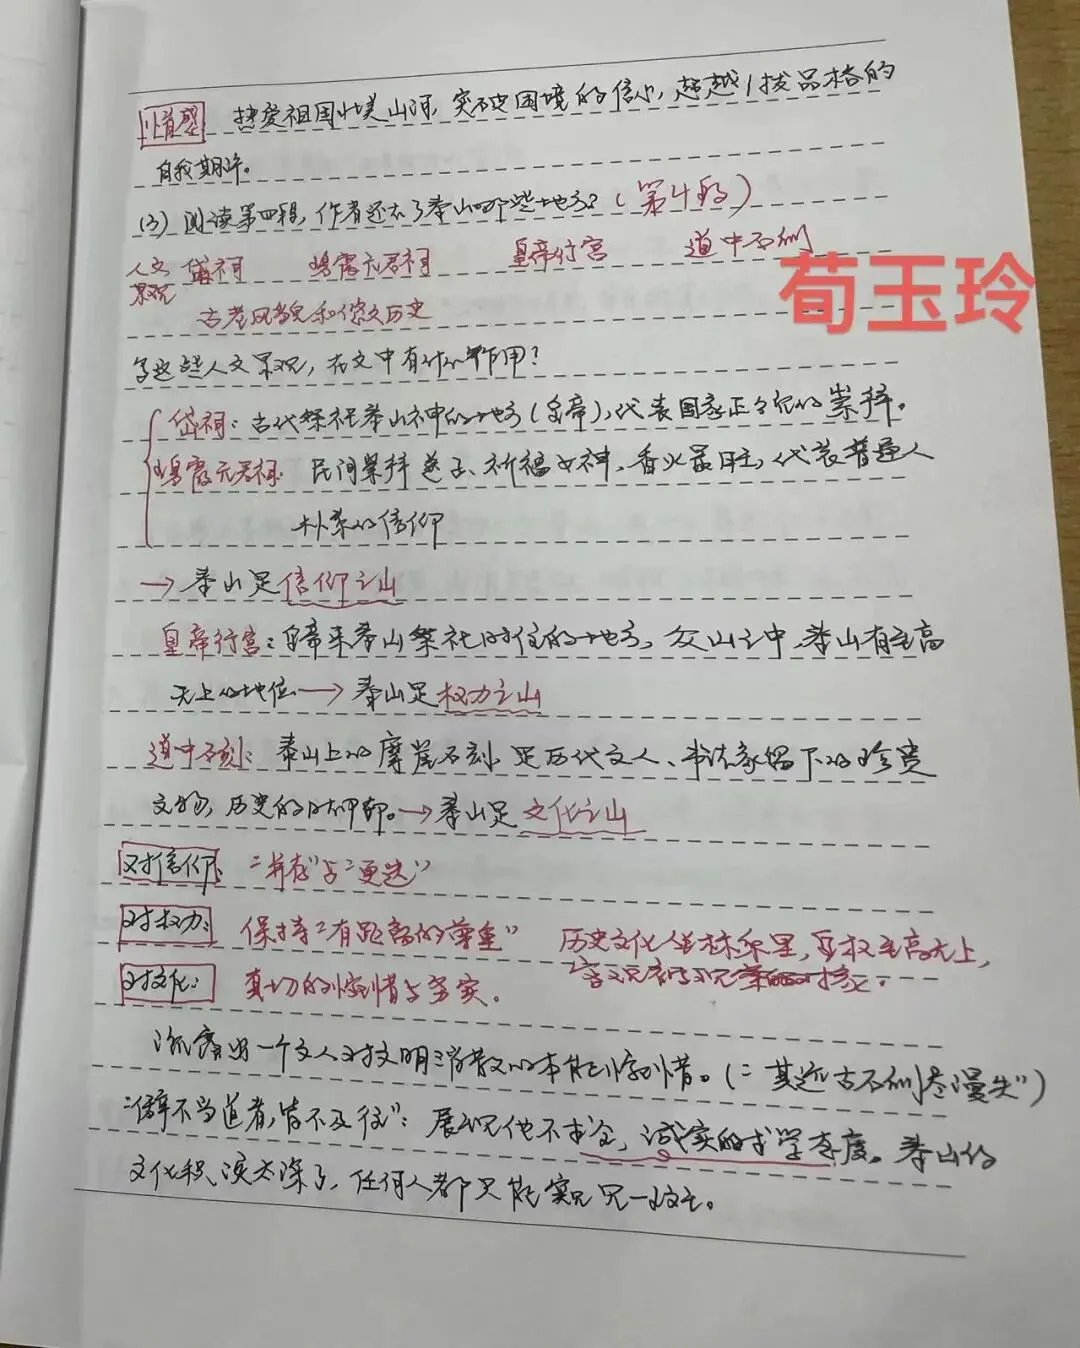 情感 热爱祖国壮美山河,突破困境的信心,超越/拔品格的
自我期许。
(3) 阅读第四段,作者还去了泰山哪些地方?(第4段)
人文景观 岱祠 碧霞元君祠 皇帝行宫 道中石刻
荀玉玲
古老风貌和悠久历史
写这些人文景观,在文中有什么作用?
岱祠:古代祭祀泰山神的地方(皇帝),代表国家正令宛的崇拜。
碧霞元君祠 民间崇拜送子、祈福女神,香火最旺,代表普通人
朴素的信仰
→ 泰山是信仰之山
皇帝行宫:皇帝来泰山祭祀时住的地方,众山之中,泰山有至高
无上的地位 → 泰山是权力之山
道中石刻:泰山上的摩崖石刻 是历代文人、书法家留下的珍贵
文物,历史的脚印。→ 泰山是文化之山
对信仰: “并存”与“更迭”
对权力: 保持“有距离的尊重” 历史文化 皇权至高无上,
对文化: 真切的惋惜与务实。
流露出一个文人对文明消散的本能惋惜。(“其远古石刻尽漫失”)
“僻不当道者,皆不及往”:展现他不求全,诚实的求学态度。泰山的
文化积淀太深了,任何人都只能窥见一鳞。